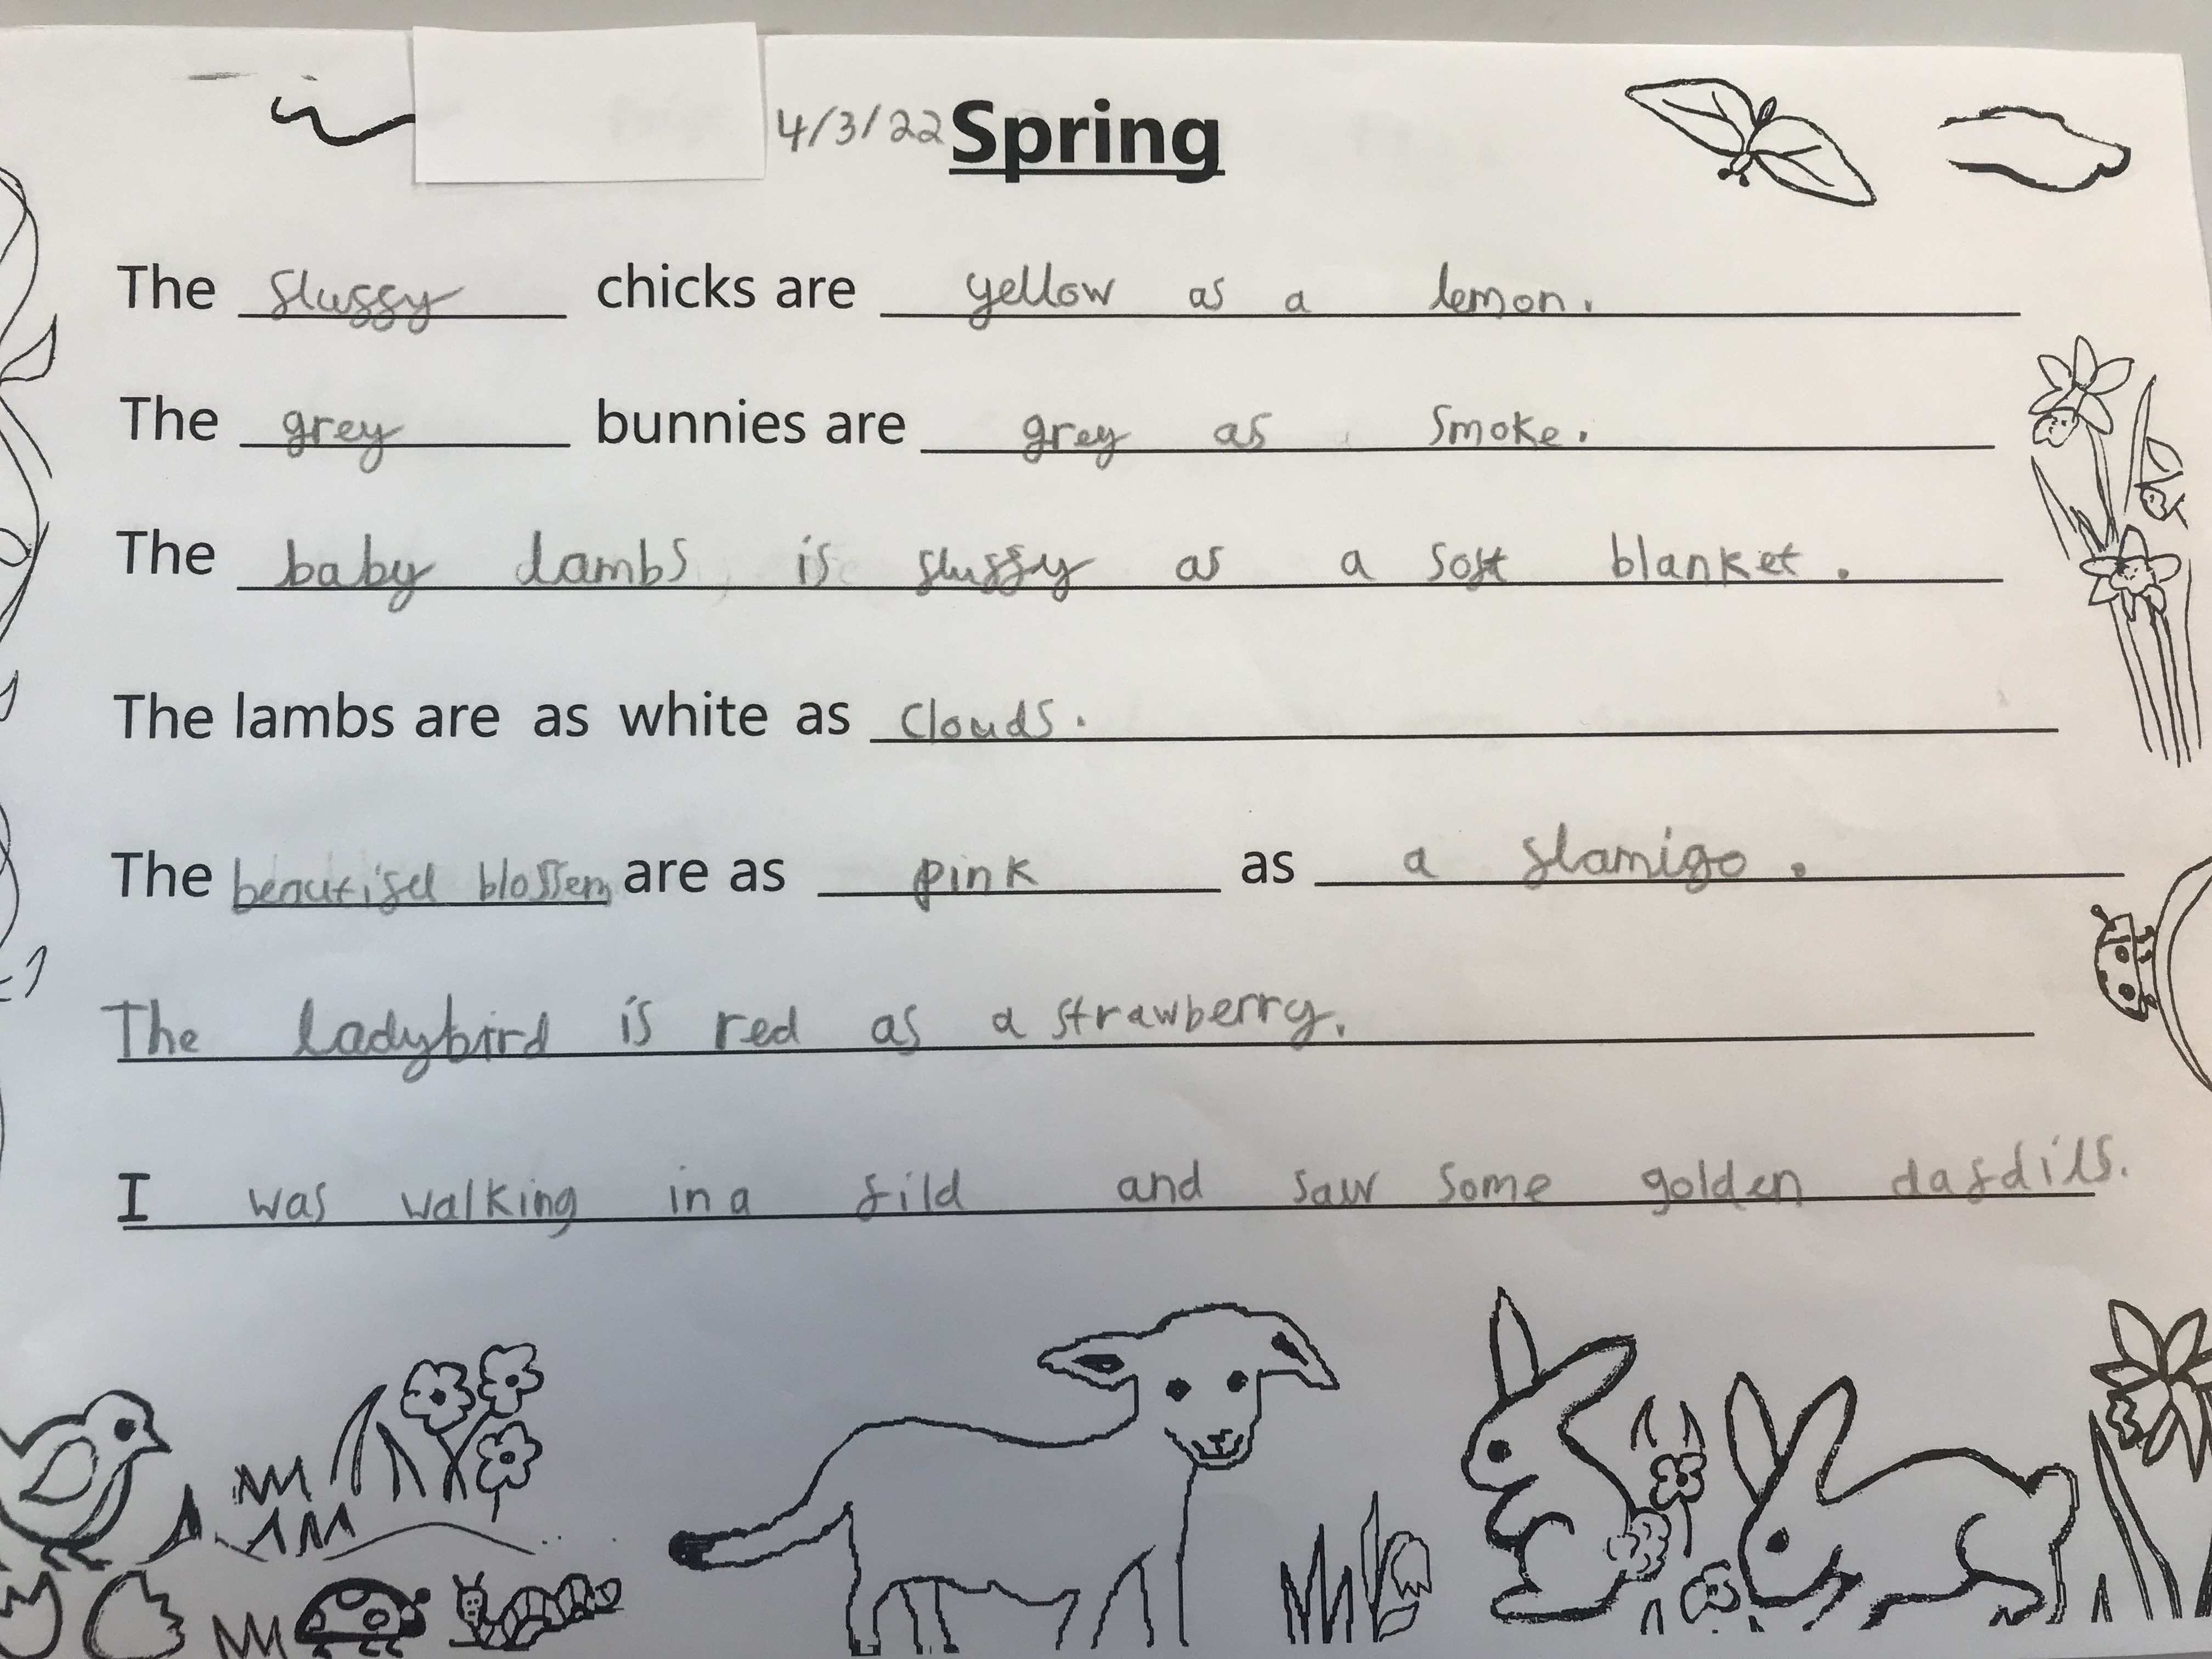 4/3/22 Spring
The fluffy chicks are yellow as a lemon.
The grey bunnies are grey as smoke.
The baby lambs is fluffy as a soft blanket.
The lambs are as white as clouds.
The beautifel blossem are as pink as a flamigo.
The ladybird is red as a strawberry.
I was walking in a fild and saw some golden dafdils.